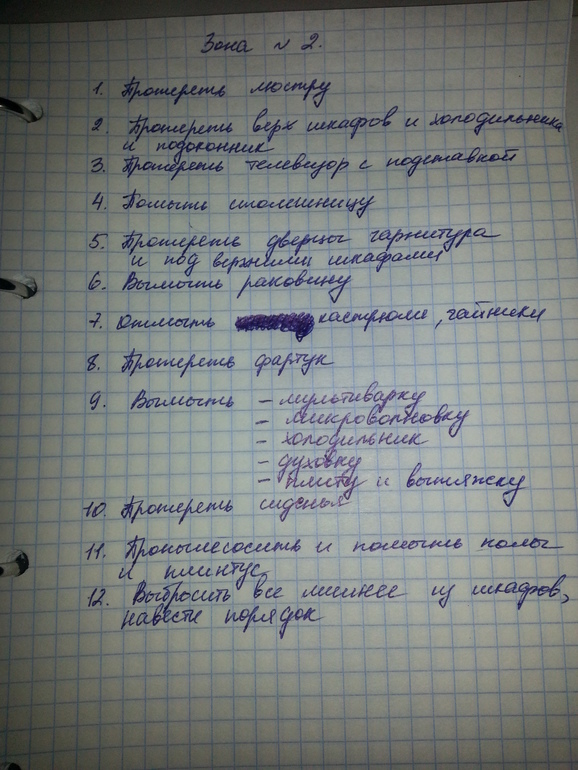 Зона № 2.
1. Протереть люстру
2. Протереть верх шкафов и холодильника
и подоконник
3. Протереть телевизор с подставкой
4. Помыть столешницу
5. Протереть дверцы гарнитура
и под верхними шкафами
6. Вымыть раковину
7. Отмыть кастрюли, чайники
8. Протереть фартук
9. Вымыть - мультиварку
- микроволновку
- холодильник
- духовку
- плиту и вытяжку
10. Протереть сиденья
11. Пропылесосить и помыть полы
и плинтус
12. Выбросить все лишнее из шкафов,
навести порядок